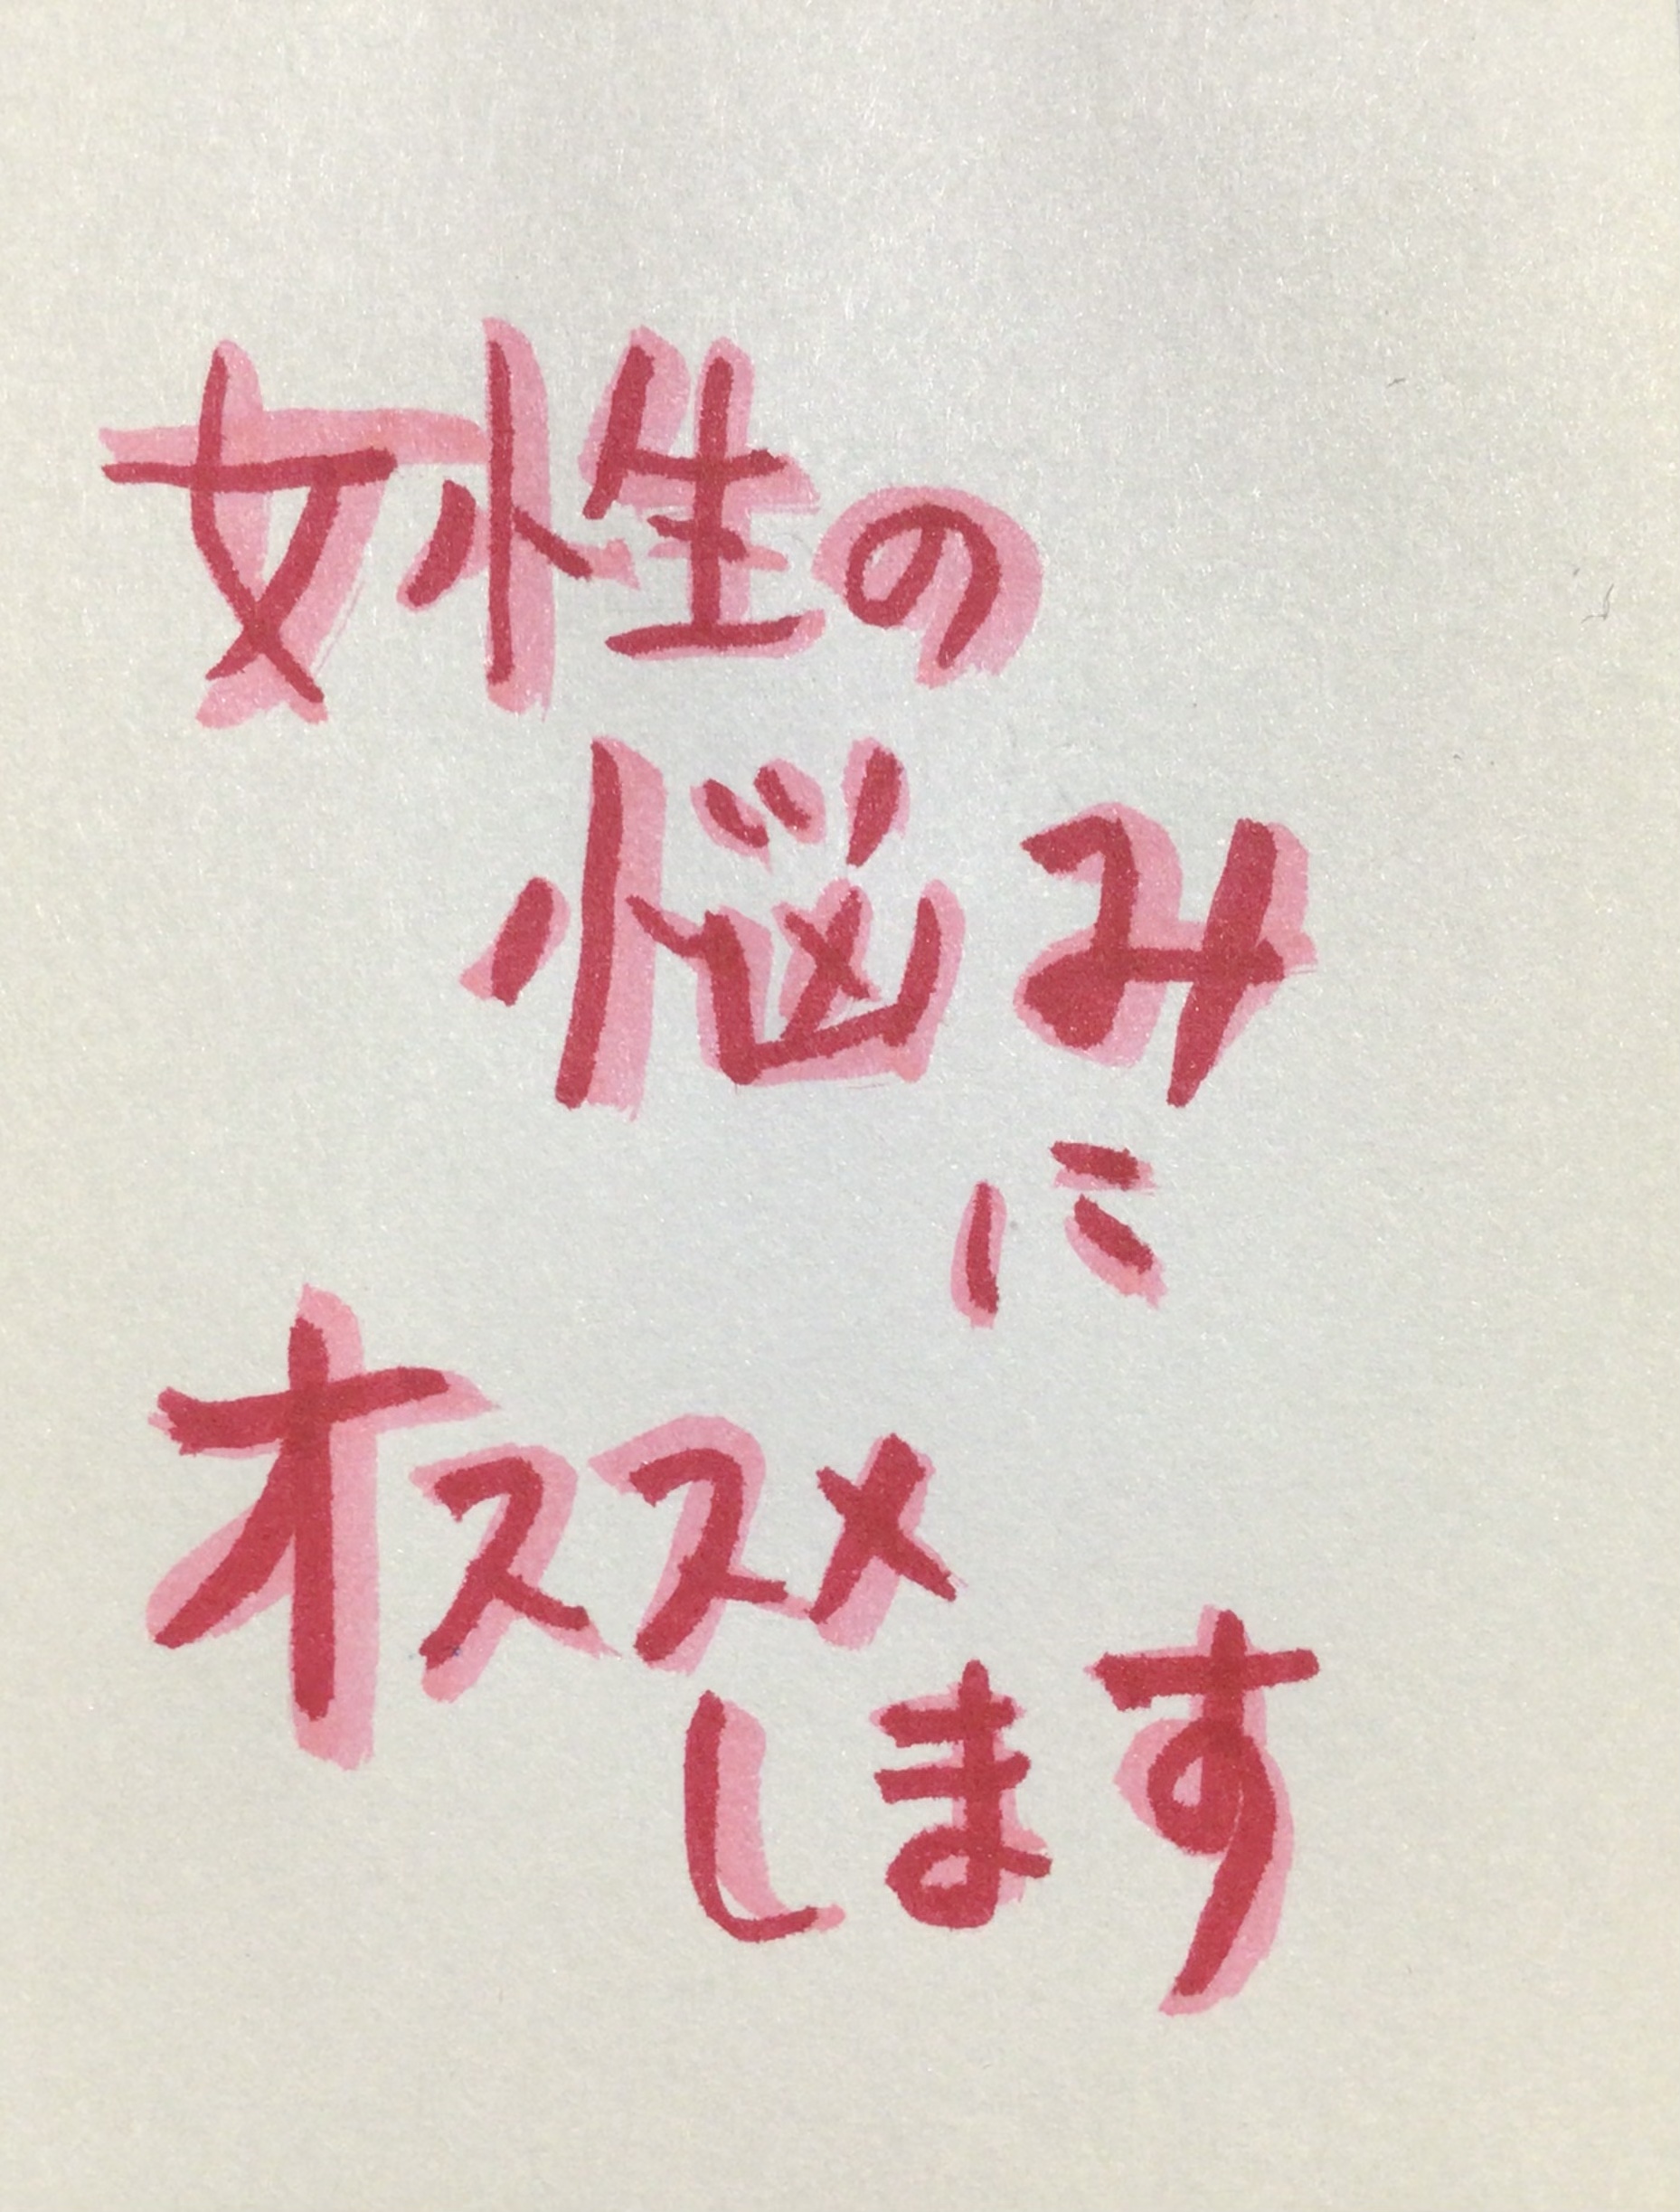 女性の
悩み
に
オススメ
します